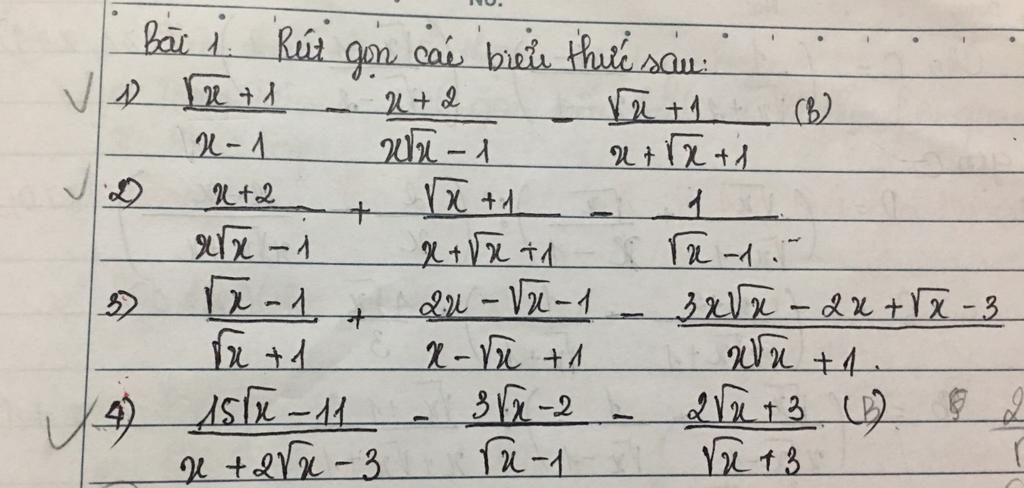 No.
Bài 1. Rút gọn các biểu thức sau:
1) (√x + 1)/(x - 1) - (x + 2)/(x√x - 1) - (√x + 1)/(x + √x + 1) (B)
2) (x + 2)/(x√x - 1) + (√x + 1)/(x + √x + 1) - 1/(√x - 1).
3) (√x - 1)/(√x + 1) + (2x - √x - 1)/(x - √x + 1) - (3x√x - 2x + √x - 3)/(x√x + 1).
4) (15√x - 11)/(x + 2√x - 3) - (3√x - 2)/(√x - 1) - (2√x + 3)/(√x + 3) (B)